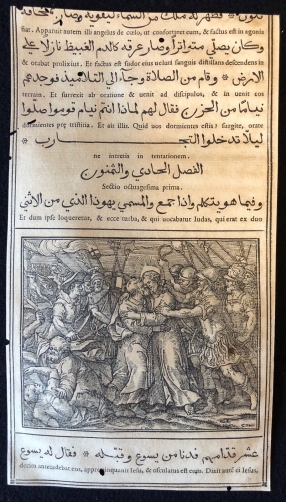 فظهر له ملك من السماء ليقويه
fiat. Apparuit autem illi angelus de cœlo, ut confortaret eum, & factus est in agonia
وكان يصلي متواترا وصار عرقه كالدم الغبيط نازلا علي
& orabat prolixius. Et factus est sudor eius veluti sanguis distillans descendens in
الارض * وقام من الصلاة وجآء الي التلاميذ فوجدهم
terram. Et surrexit ab oratione & venit ad discipulos, & invenit eos
نياما من الحزن فقال لهم لماذا انتم نيام قوموا صلوا
dormientes præ tristitia. Et ait illis. Quid vos dormientes estis? surgite, orate
ليلا تدخلوا التجـــارب *
ne intretis in tentationem.
الفصل الحادي والثمنون
Sectio octuagesima prima.
وفيما هو يتكلم واذا جمع والمسمي يهوذا الذي من الاثني
Et dum ipse loqueretur, & ecce turba, & qui vocabatur Iudas, qui erat ex duo
عشر قدامهم فدنا من يسوع وقبله * فقال له يسوع
decim antecedebat eos, appropinquavit Iesu, & osculatus est eum. Dixit autē ei Iesus,